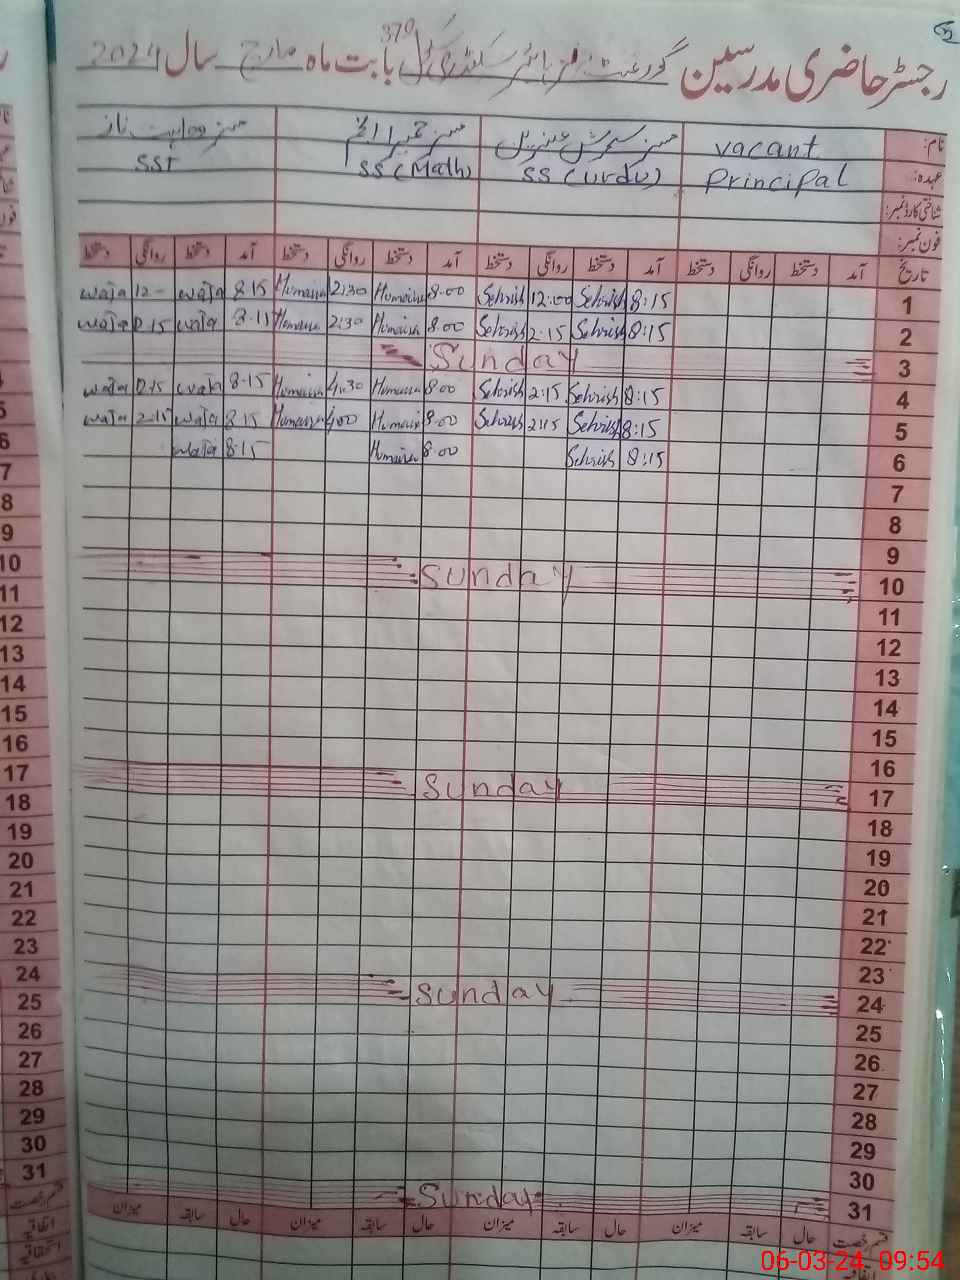 رجسٹر حاضری مدرسین گورنمنٹ گرلز ہائر سیکنڈری بابت ماہ مارچ سال 2024
370
نام: vacant
عہدہ: Principal SS (Urdu) SS (Math) SST
شناختی کارڈ نمبر:
فون نمبر:
تاریخ آمد دستخط روانگی دستخط آمد دستخط روانگی دستخط آمد دستخط روانگی دستخط آمد دستخط روانگی دستخط
1 8:15 Sehrish 12:00 Sehrish 8.00 Humaira 2:30 Humaira 8.15 waja 12- waja
2 8:15 Sehrish 2:15 Sehrish 8.00 Humaira 2:30 Humaira 8.15 waja 2.15 waja
3 Sunday
4 8:15 Sehrish 2:15 Sehrish 8.00 Humaira 4:30 Humaira 8.15 waja 2.15 waja
5 8:15 Sehrish 2:15 Sehrish 8.00 Humaira 4.00 Humaira 8.15 waja 2.15 waja
6 8:15 Sehrish 8.00 Humaira 8.15 waja
7
8
9
10 Sunday
11
12
13
14
15
16
17 Sunday
18
19
20
21
22
23
24 Sunday
25
26
27
28
29
30
31 Sunday
قسم رخصت حال سابقہ میزان حال سابقہ میزان حال سابقہ میزان حال سابقہ میزان
6
7
8
9
10
11
12
13
14
15
16
17
18
19
20
21
22
23
24
25
26
27
28
29
30
31
قسم رخصت
اتفاقیہ
استحقاقیہ
06-03-24 09:54